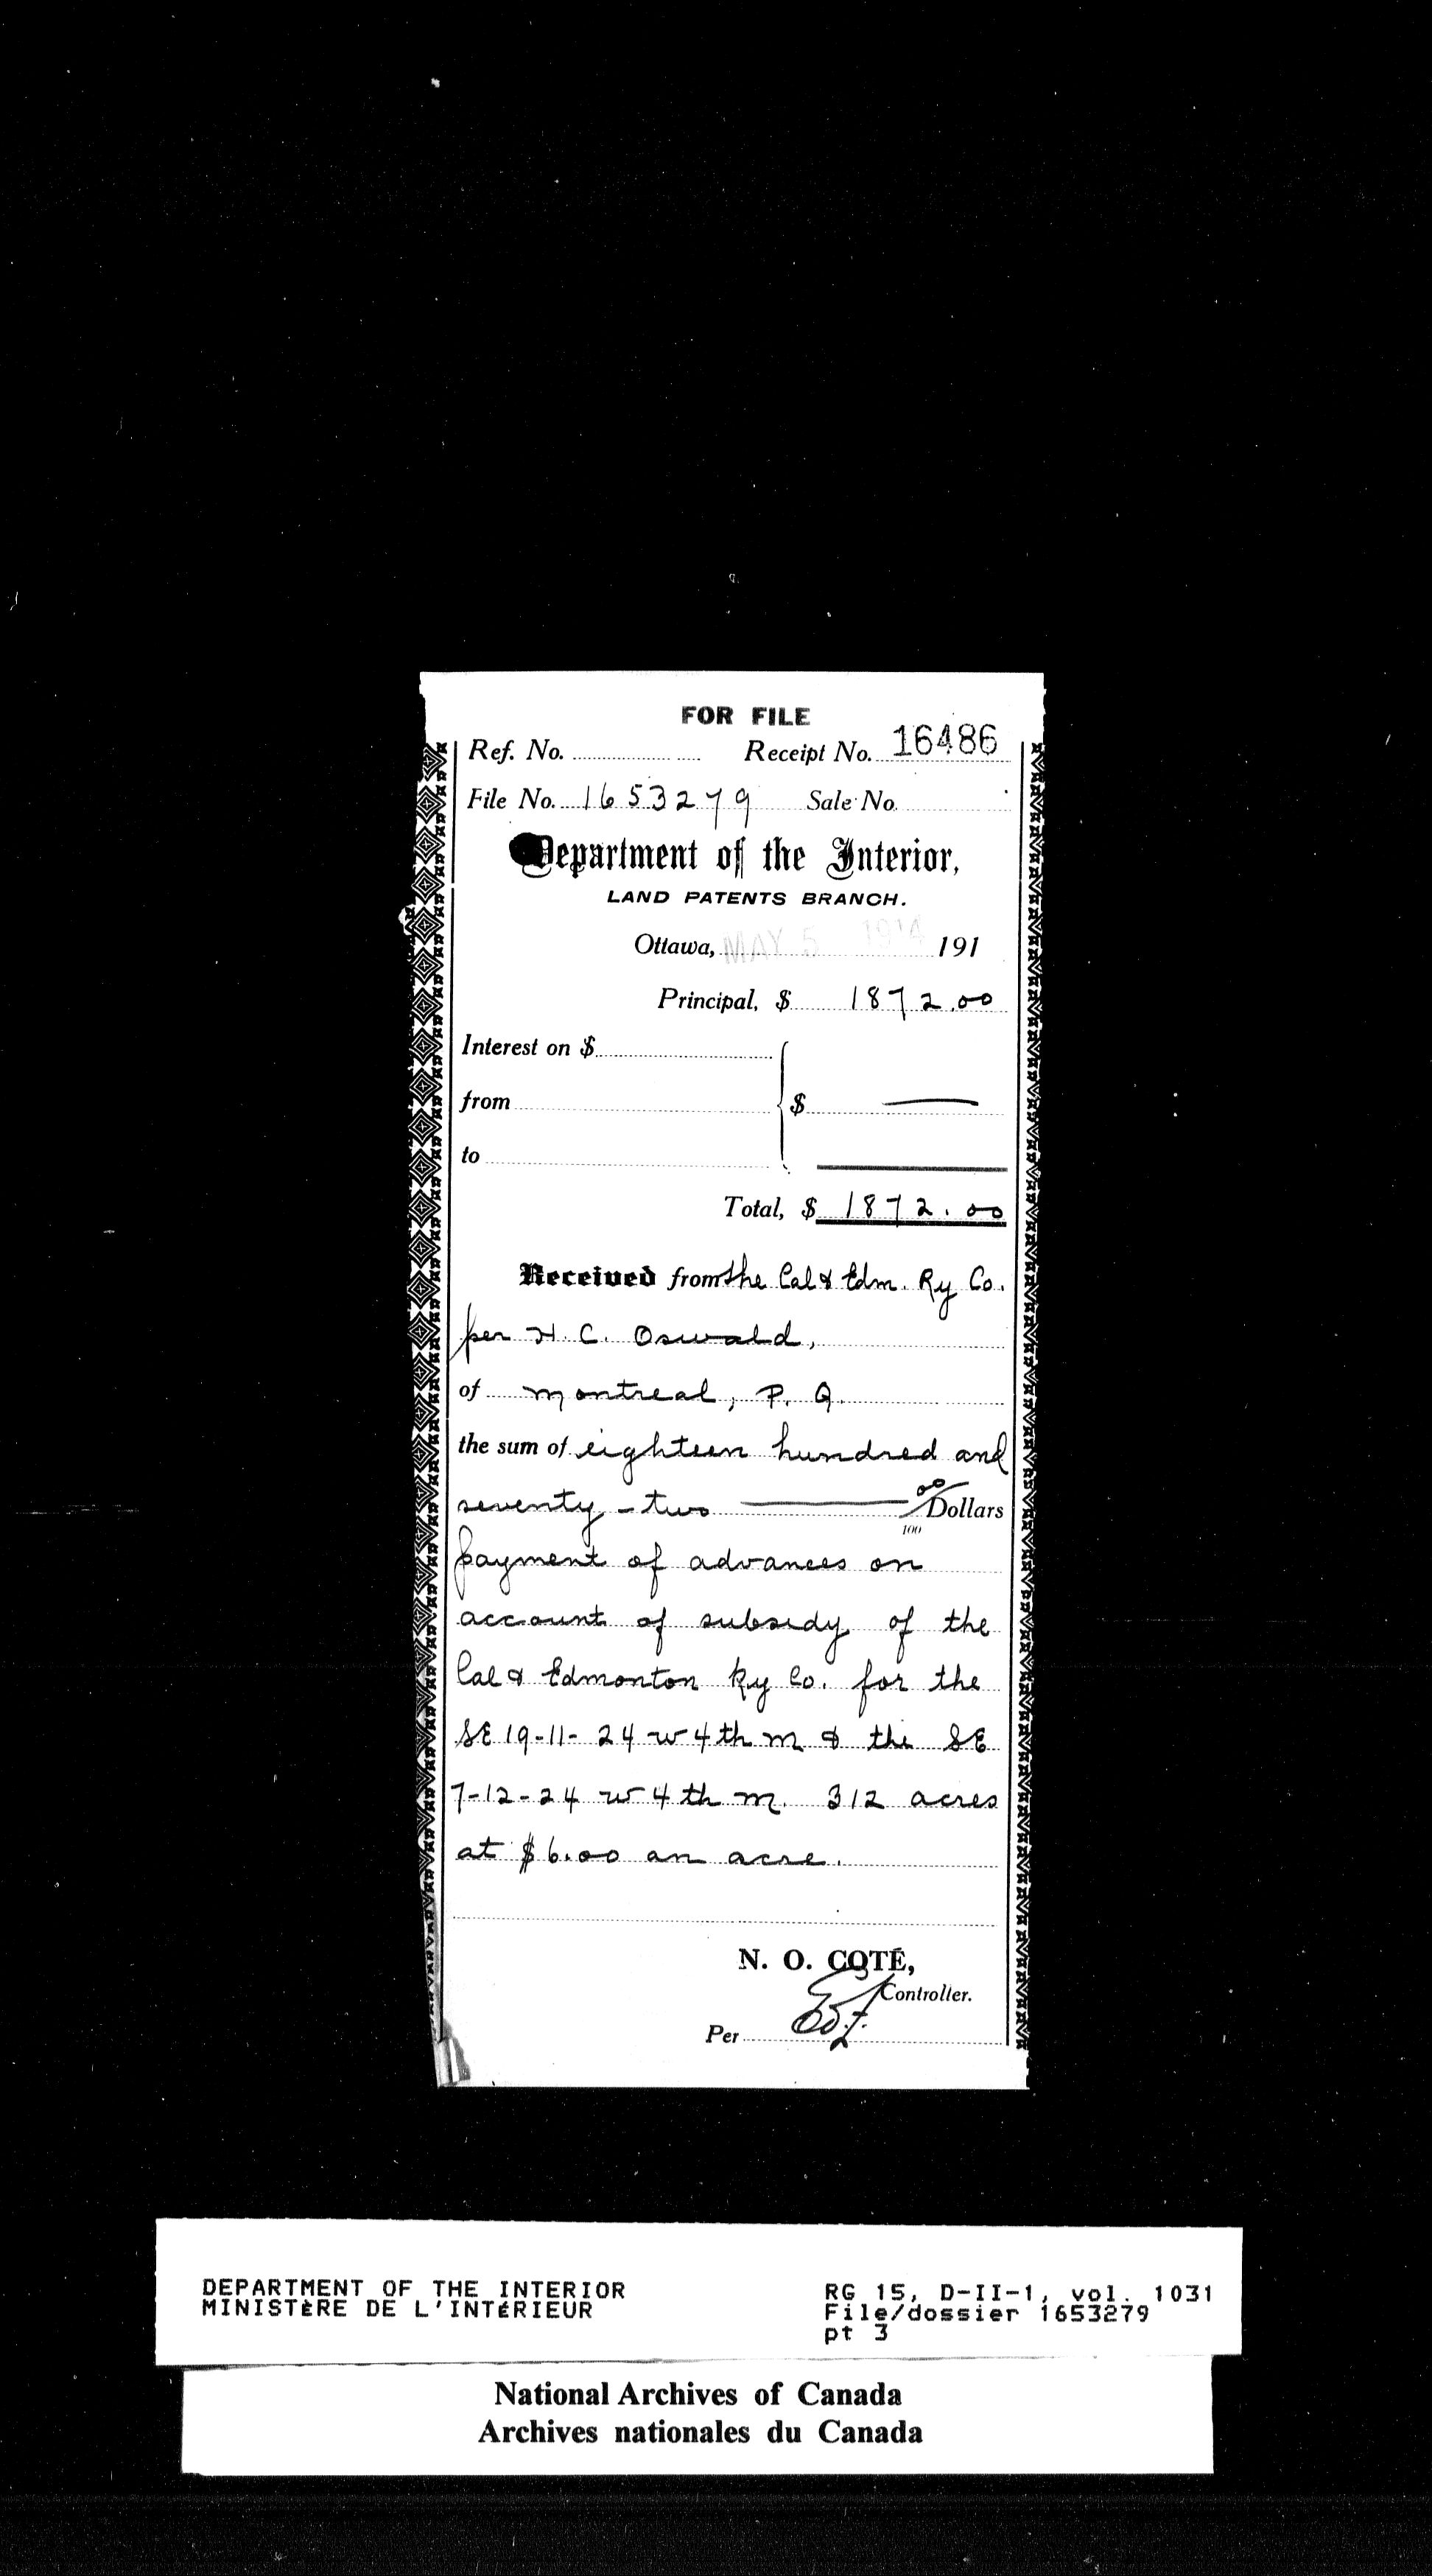 FOR FILE
Ref. No. Receipt No. 16486
File No. 1653279 Sale No.
Department of the Interior,
LAND PATENTS BRANCH.
Ottawa, MAY 5 1914 191
Principal, $ 1872.00
Interest on $
from $ —
to
Total, $ 1872.00
Received from the Cal & Edm. Ry Co.
per H. C. Oswald,
of Montreal, P. Q.
the sum of eighteen hundred and
seventy-two — 00/100 Dollars
payment of advances on
account of subsidy of the
Cal & Edmonton Ry Co. for the
SE 19-11-24 w 4th m & the SE
7-12-24 w 4th m. 312 acres
at $6.00 an acre.
N. O. COTÉ,
Controller.
Per
DEPARTMENT OF THE INTERIOR
MINISTÈRE DE L'INTÉRIEUR
RG 15, D-II-1, vol. 1031
File/dossier 1653279
pt 3
National Archives of Canada
Archives nationales du Canada